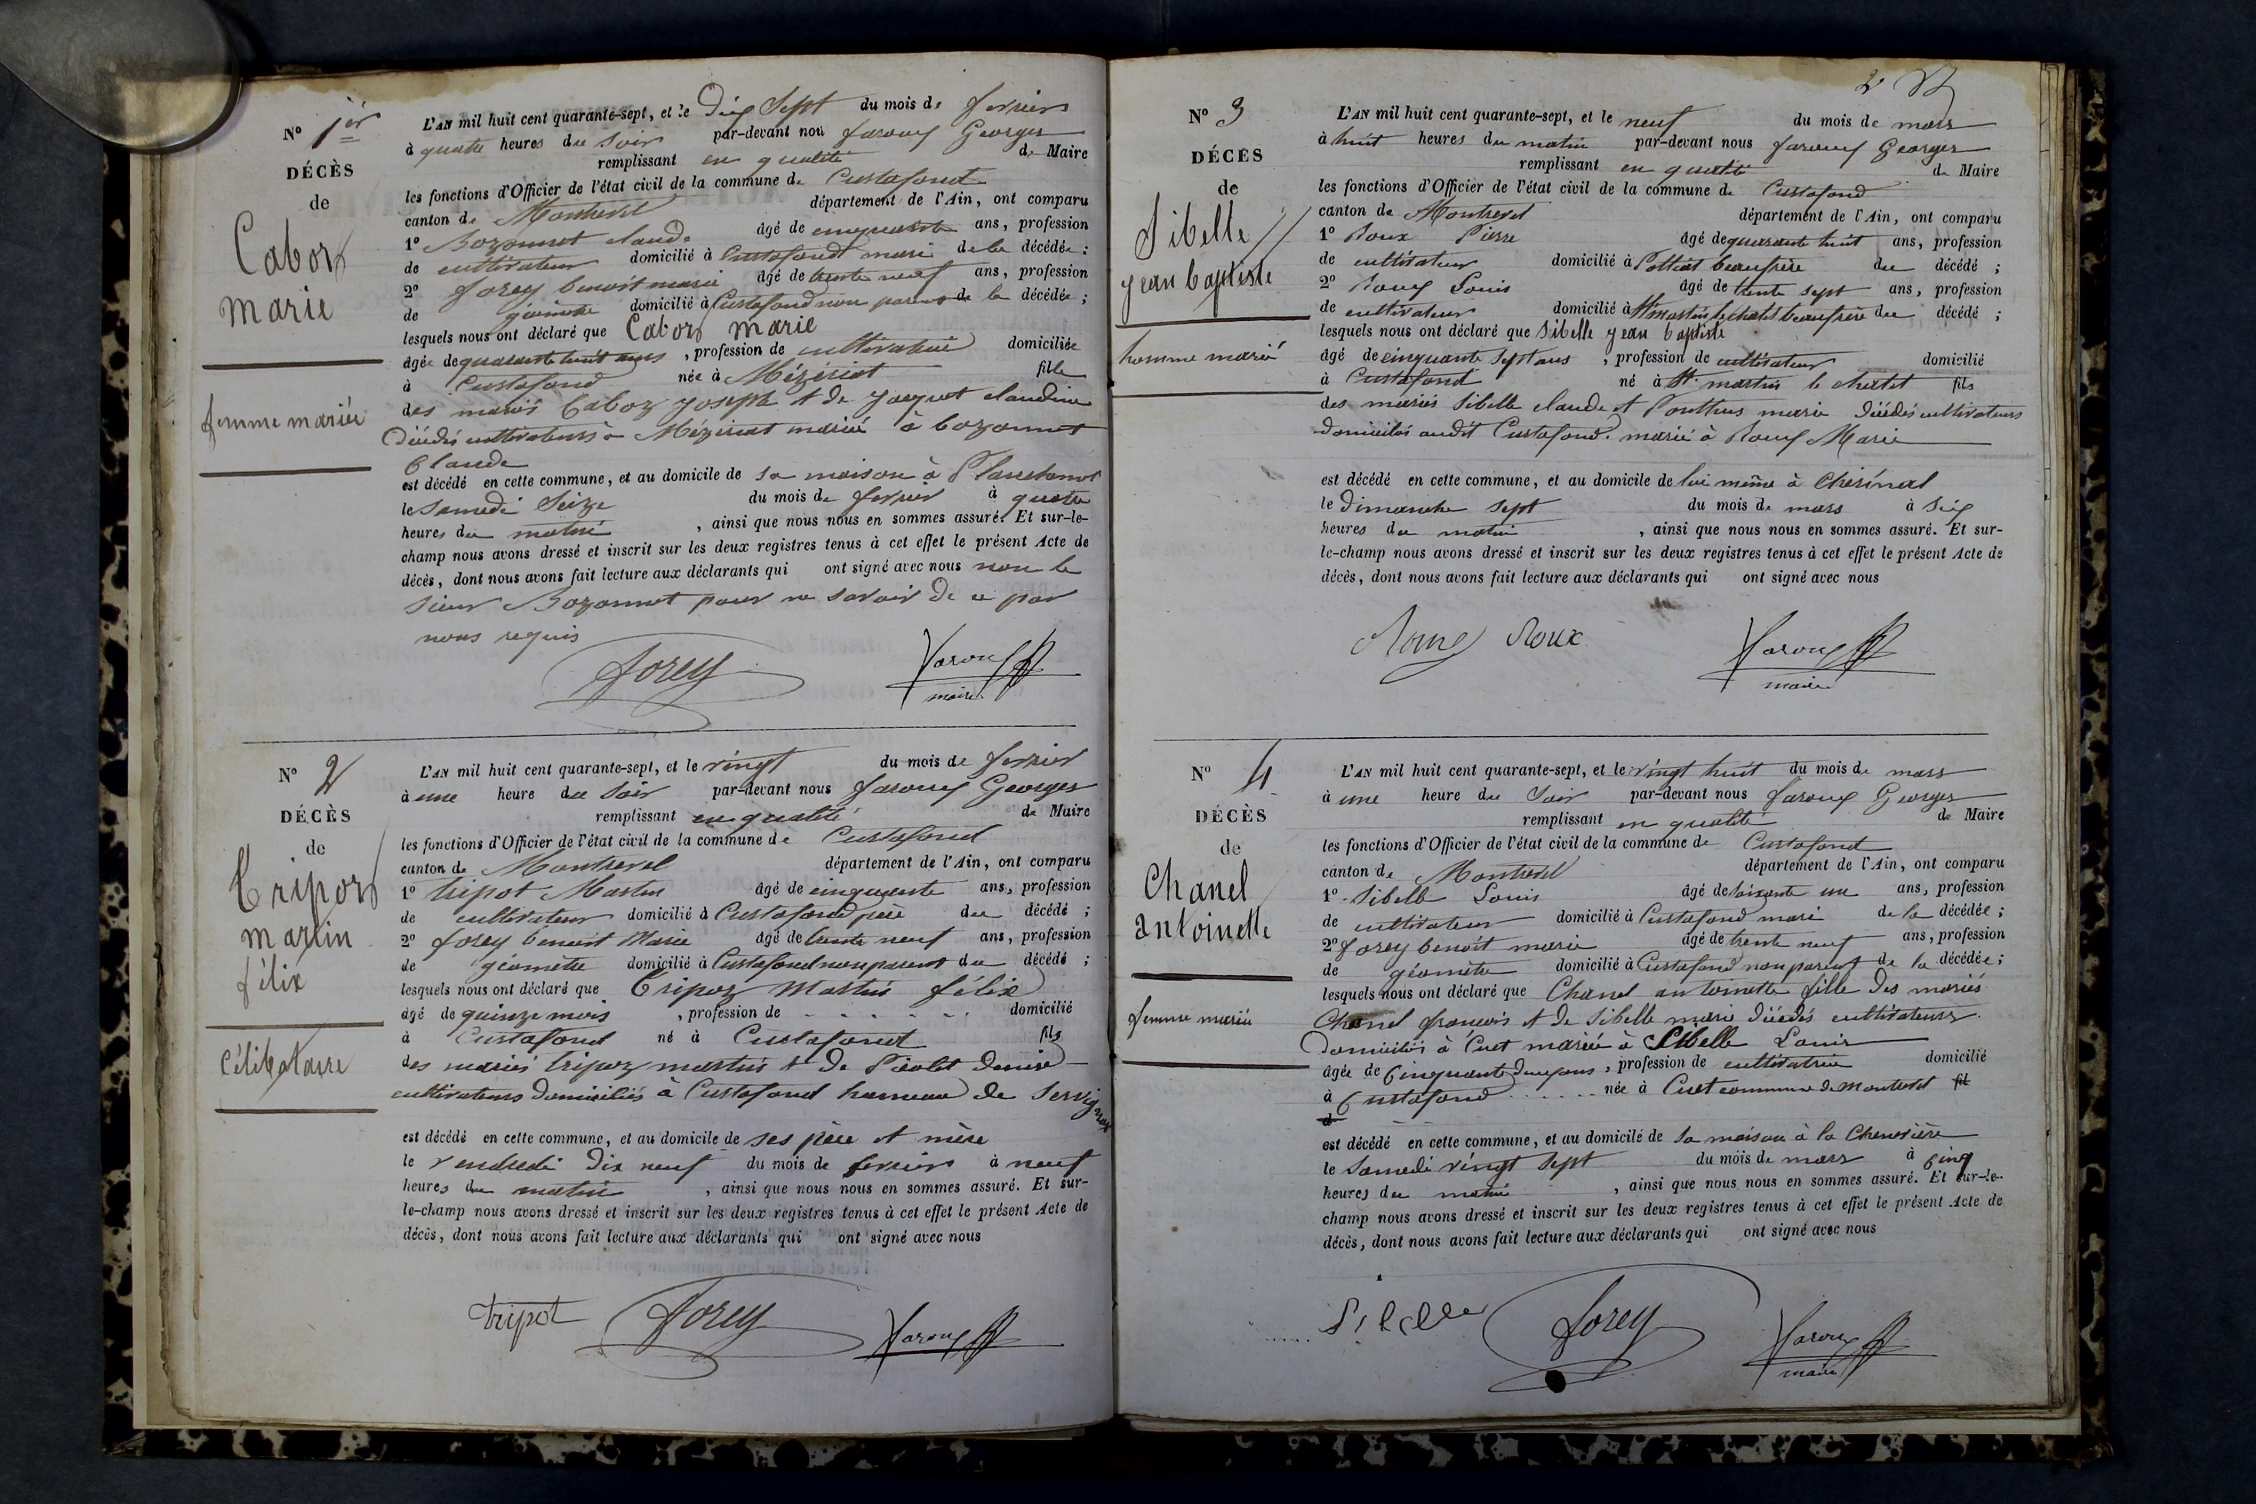 N° 1er
DÉCÈS
de
Caboz
marie
femme mariée
L'AN mil huit cent quarante-sept, et le Dix sept du mois de fevrier
à quatre heures du soir par-devant nous faroux Georges
remplissant en qualité de Maire
les fonctions d'Officier de l'état civil de la commune de Curtafond
canton de Montrevel département de l'Ain, ont comparu
1° Bozonnet claude âgé de cinquante ans, profession
de cultivateur domicilié à Curtafond mari de la décédée ;
2° forey benoit marie âgé de trente neuf ans, profession
de géomètre domicilié à Curtafond non parent de la décédée ;
lesquels nous ont déclaré que Caboz marie
âgée de quarante huit ans, profession de cultivatrice domiciliée
à Curtafond née à Mézeriat fille
des mariés Caboz joseph et de jacquet claudine
Décédés cultivateurs à Mézeriat mariée à bozonnet
Claude
est décédé en cette commune, et au domicile de sa maison à
le Samedi Seize du mois de fevrier à quatre
heures du matin, ainsi que nous nous en sommes assuré. Et sur-le-
champ nous avons dressé et inscrit sur les deux registres tenus à cet effet le présent Acte de
décès, dont nous avons fait lecture aux déclarants qui ont signé avec nous non le
sieur Bozonnet pour ne savoir de ce par
nous requis
forey faroux
maire
N° 2
DÉCÈS
de
Tripoz
martin
félix
Célibataire
L'AN mil huit cent quarante-sept, et le vingt du mois de fevrier
à une heure du soir par-devant nous faroux Georges
remplissant en qualité de Maire
les fonctions d'Officier de l'état civil de la commune de Curtafond
canton de Montrevel département de l'Ain, ont comparu
1° tripot Martin âgé de cinquante ans, profession
de cultivateur domicilié à Curtafond père du décédé ;
2° forey benoit Marie âgé de trente neuf ans, profession
de géomètre domicilié à Curtafond non parent du décédé ;
lesquels nous ont déclaré que Tripoz Martin félix
âgé de quinze mois, profession de - - - - - - domicilié
à Curtafond né à Curtafond fils
des mariés tripoz martin et de Pirolet Denise
cultivateurs Domiciliés à Curtafond hameau de Servignat
est décédé en cette commune, et au domicile de ses père et mère
le vendredi dix neuf du mois de fevrier à neuf
heures du matin, ainsi que nous nous en sommes assuré. Et sur-
le-champ nous avons dressé et inscrit sur les deux registres tenus à cet effet le présent Acte de
décès, dont nous avons fait lecture aux déclarants qui ont signé avec nous
tripot forey faroux
2
N° 3
DÉCÈS
de
Sibelle
jean baptiste
homme marié
L'AN mil huit cent quarante-sept, et le neuf du mois de mars
à huit heures du matin par-devant nous faroux Georges
remplissant en qualité de Maire
les fonctions d'Officier de l'état civil de la commune de Curtafond
canton de Montrevel département de l'Ain, ont comparu
1° Roux Pierre âgé de quarante huit ans, profession
de cultivateur domicilié à Polliat beaufrère du décédé ;
2° Roux Louis âgé de trente sept ans, profession
de cultivateur domicilié à St martin le chatel beaufrère du décédé ;
lesquels nous ont déclaré que Sibelle jean baptiste
âgé de cinquante sept ans, profession de cultivateur domicilié
à Curtafond né à St martin le chatel fils
des mariés Sibelle claude et Ponthus marie Décédés cultivateurs
domiciliés audit Curtafond. marié à Roux Marie
est décédé en cette commune, et au domicile de lui même à Cherinal
le dimanche sept du mois de mars à six
heures du matin, ainsi que nous nous en sommes assuré. Et sur-
le-champ nous avons dressé et inscrit sur les deux registres tenus à cet effet le présent Acte de
décès, dont nous avons fait lecture aux déclarants qui ont signé avec nous
Roux Roux faroux
maire
N° 4
DÉCÈS
de
Chanel
antoinette
femme mariée
L'AN mil huit cent quarante-sept, et le vingt huit du mois de mars
à une heure du Soir par-devant nous faroux Georges
remplissant en qualité de Maire
les fonctions d'Officier de l'état civil de la commune de Curtafond
canton de Montrevel département de l'Ain, ont comparu
1° Sibelle Louis âgé de soixante un ans, profession
de cultivateur domicilié à Curtafond mari de la décédée ;
2° forey benoit marie âgé de trente neuf ans, profession
de géomètre domicilié à Curtafond non parent de la décédée ;
lesquels nous ont déclaré que Chanel antoinette fille des mariés
Chanel francois et de Sibelle marie décédés cultivateurs
domiciliés à Cuet mariée à Sibelle Louis
âgée de Cinquante deux ans, profession de cultivatrice domicilié
à Curtafond née à Cuet commune de Montrevel fil
d
est décédé en cette commune, et au domicile de sa maison à la Chenevière
le Samedi vingt sept du mois de mars à cinq
heures du matin, ainsi que nous nous en sommes assuré. Et sur-le-
champ nous avons dressé et inscrit sur les deux registres tenus à cet effet le présent Acte de
décès, dont nous avons fait lecture aux déclarants qui ont signé avec nous
Sibelle forey faroux
maire